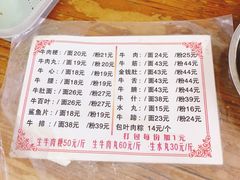 牛肉粿:/面20元/粉21元
牛肉丸:/面19元/粉20元
牛心:/面18元/粉19元
牛腰:/面18元/粉19元
牛肚面:/面18元/粉19元
牛百叶:/面26元/粉27元
鲨鱼片:/面18元/粉19元
牛排:/面38元/粉39元
牛肉:/面24元/粉25元
牛筋:/面43元/粉44元
金钱肚:/面43元/粉44元
牛舌:/面43元/粉44元
牛腩:/面43元/粉44元
牛什:/面38元/粉39元
水丸:/面15元/粉16元
蹄:/面23元/粉24元
包叶肉粽 14元/个
打包每份加1元
生牛肉粿50元/斤 生牛肉丸60元/斤 生水丸30元/斤